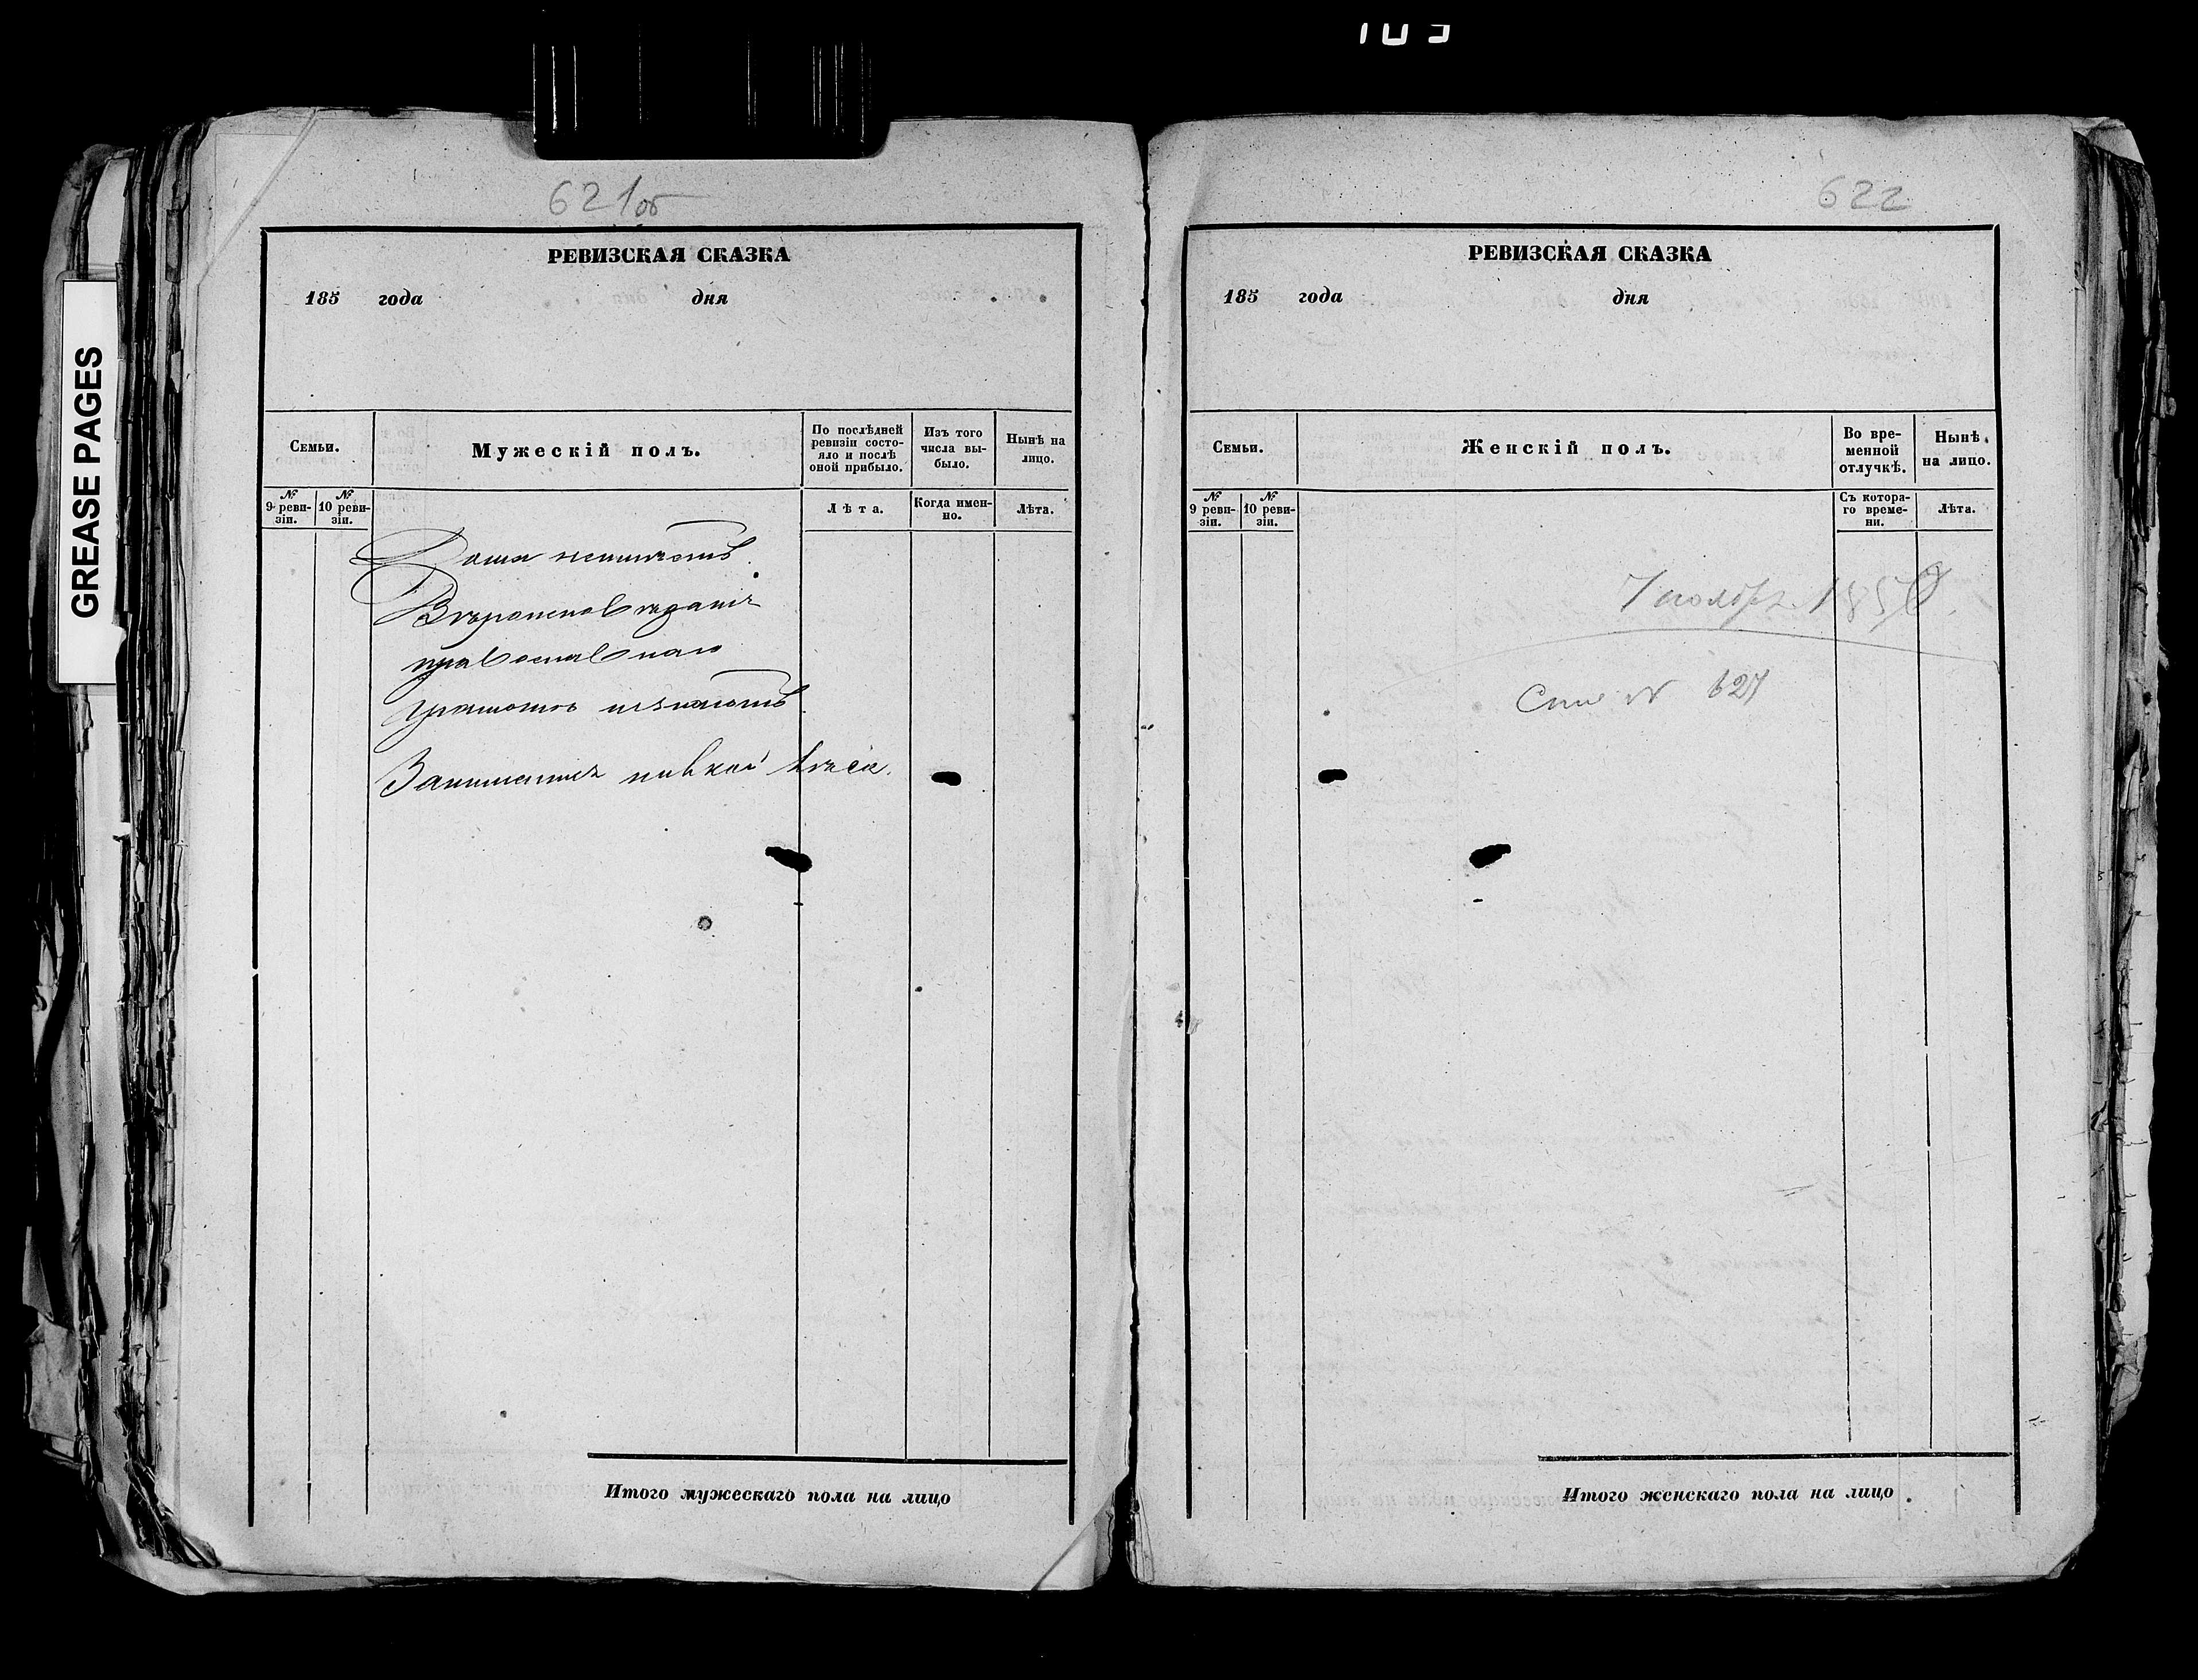 GREASE PAGES
621об
РЕВИЗСКАЯ СКАЗКА
185 года дня
Семьи.
Мужескій полъ.
По послѣдней ревизіи состо-
яло и послѣ оной прибыло.
Изъ того числа вы-
было.
Нынѣ на лицо.
№ 9 реви-
зіи.
№ 10 реви-
зіи.
Лѣта.
Когда имен-
но.
Лѣта.
Дома неимѣютъ.
православнаго
грамоты незнаютъ
Занимаются
Итого мужескаго пола на лицо
622
РЕВИЗСКАЯ СКАЗКА
185 года дня
Семьи.
Женскій полъ.
Во вре-
менной отлучкѣ.
Нынѣ на лицо.
№ 9 реви-
зіи.
№ 10 реви-
зіи.
Съ котора-
го време-
ни.
Лѣта.
7 ноября 1850
№ 627
Итого женскаго пола на лицо